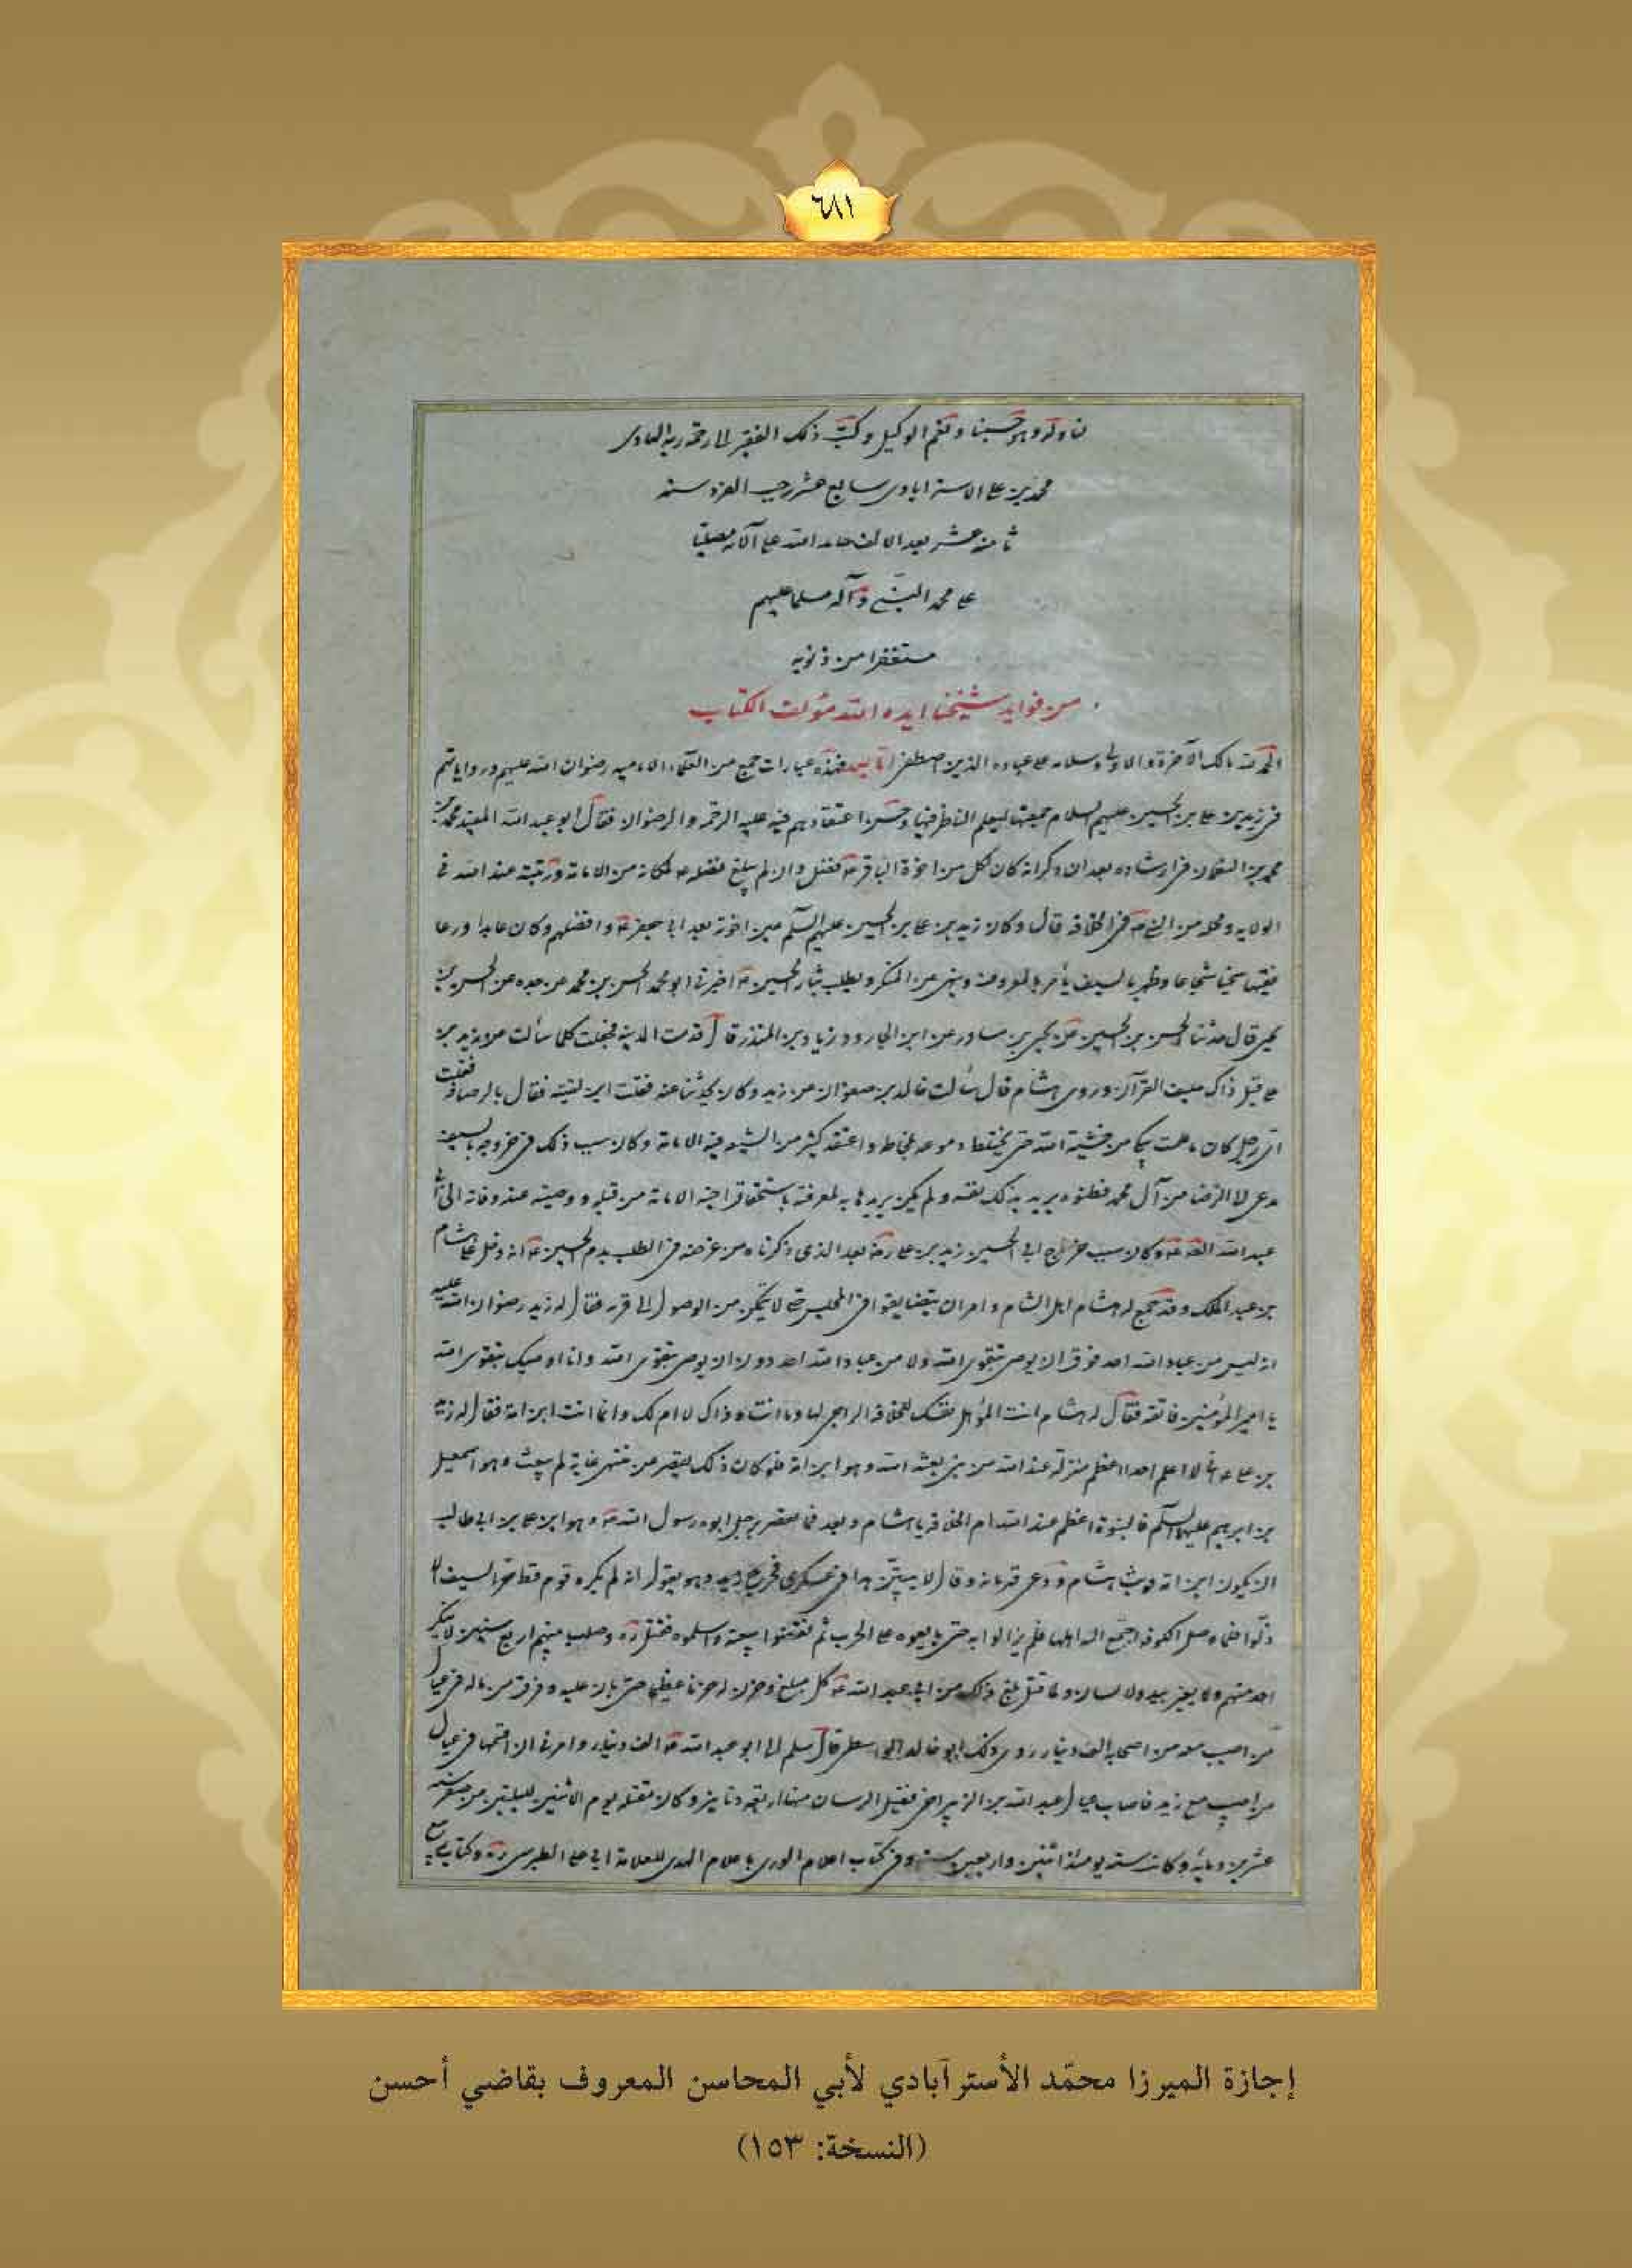 ٦٨١
وكتب ذلك الفقير الى رحمة ربه الهادى
محمد بن على الاسترابادى سابع عشر رجب سنه
ثامن عشر بعد الالف حامدا لله على آلائه مصليا
على محمد النبى وآله مسلما عليهم
مستغفرا من ذنوبه
من فوايد شيخنا ايده الله مؤلف الكتاب
الآخرة والاولى وسلام على عباده الذين اصطفى اما بعد فهذه عبارات جمع من العلماء الاماميه رضوان الله عليهم ورواياتهم
فى زيد بن على بن الحسين عليهم السلام جمعتها ليعلم الناظر فيها اعتقادهم فيه عليه الرحمة والرضوان فقال ابو عبد الله المفيد محمد بن
محمد بن النعمان فى ارشاده بعد ان ذكر انه كان لكل من اخوة الباقر فضل وان لم يبلغ فضله لمكانه من الامامة ورتبته عند الله فى
الولايه ومحله من النبى فى الخلافه قال وكان زيد بن على بن الحسين عليهم السلم عين اخوته بعد ابى جعفر وافضلهم وكان عابدا ورعا
فقيها سخيا شجاعا وظهر بالسيف يأمر بالمعروف وينهى عن المنكر ويطلب بثار الحسين اخبرنى ابو محمد الحسن بن محمد عن جده عن الحسن بن
يحيى قال حدثنا الحسن بن الحسين عن يحيى بن مساور عن ابى الجارود زياد بن المنذر قال قدمت المدينه فجعلت كلما سألت عن زيد بن
على قيل ذاك حليف القرآن وروى هشام قال سألت خالد بن صفوان عن زيد وكان يحدثنا عنه فقلت اين لقيته فقال بالرصافه فقلت
اى رجل كان ما علمت يبكى من خشية الله حتى يختلط دموعه بمخاطه واعتقد كثير من الشيعه فيه الامامة وكان سبب ذلك خروجه بالسيف
يدعى الى الرضا من آل محمد فظنوه يريد بذلك نفسه ولم يكن يريدها به لمعرفته باستحقاق اخيه الامامة من قبله ووصيته عند وفاته الى
عبد الله وكان سبب خروج ابى الحسين زيد بن على بعد الذى ذكرناه من غرضه فى الطلب بدم الحسين انه دخل على هشام
بن عبد الملك وقد جمع له هشام اهل الشام وامر ان يتضايقوا فى المجلس حتى لا يتمكن من الوصول الى قربه فقال له زيد رضوان الله عليه
انه ليس من عباد الله احد فوق ان يوصى بتقوى الله ولا من عباد الله احد دون ان يوصى بتقوى الله وانا اوصيك بتقوى الله
يا امير المؤمنين فاتقه فقال له هشام انت المؤهل نفسك للخلافة الراجى لها وما انت وذاك لا ام لك وانما انت ابن امة فقال له زيد
بن على انى لا اعلم احدا اعظم منزلة عند الله من نبى بعثه الله وهو ابن امة فلو كان ذلك يقصر عن منتهى غاية لم يبعث وهو اسمعيل
بن ابرهيم عليهما السلم فالنبوة اعظم عند الله ام الخلافة يا هشام وبعد فما يقصر برجل ابوه رسول الله وهو ابن على بن ابى طالب
ان يكون ابن امة فوثب هشام ودعى قهرمانه وقال لا يبيتن هذا فى عسكرى فخرج زيد وهو يقول انه لم يكره قوم قط حر السيف الا
ذلوا فلما وصل الكوفه اجتمع اليه اهلها فلم يزالوا به حتى بايعوه على الحرب ثم نقضوا بيعته واسلموه فقتل وصلب بينهم اربع سنين لا ينكر
احد منهم ولا يغير بيد ولا لسان ولما قتل بلغ ذلك من ابى عبد الله كل مبلغ وحزن له حزنا عظيما حتى بان عليه وفرق من ماله فى عيال
من اصيب معه من اصحابه الف دينار روى ذلك ابو خالد الواسطى قال سلم الى ابو عبد الله الف دينار وامرنى ان اقسمها فى عيال
من اصيب مع زيد فاصاب عيال عبد الله بن الزبير اخى فضيل الرسان منها اربعة دنانير وكان مقتله يوم الاثنين لليلتين من صفر سنه
عشرين ومايه وكانت سنه يومئذ اثنين واربعين سنه وفى كتاب اعلام الورى باعلام الهدى للعلامة ابى على الطبرسى
إجازة الميرزا محمّد الأسترآبادي لأبي المحاسن المعروف بقاضي أحسن
(النسخة: ١٥٣)